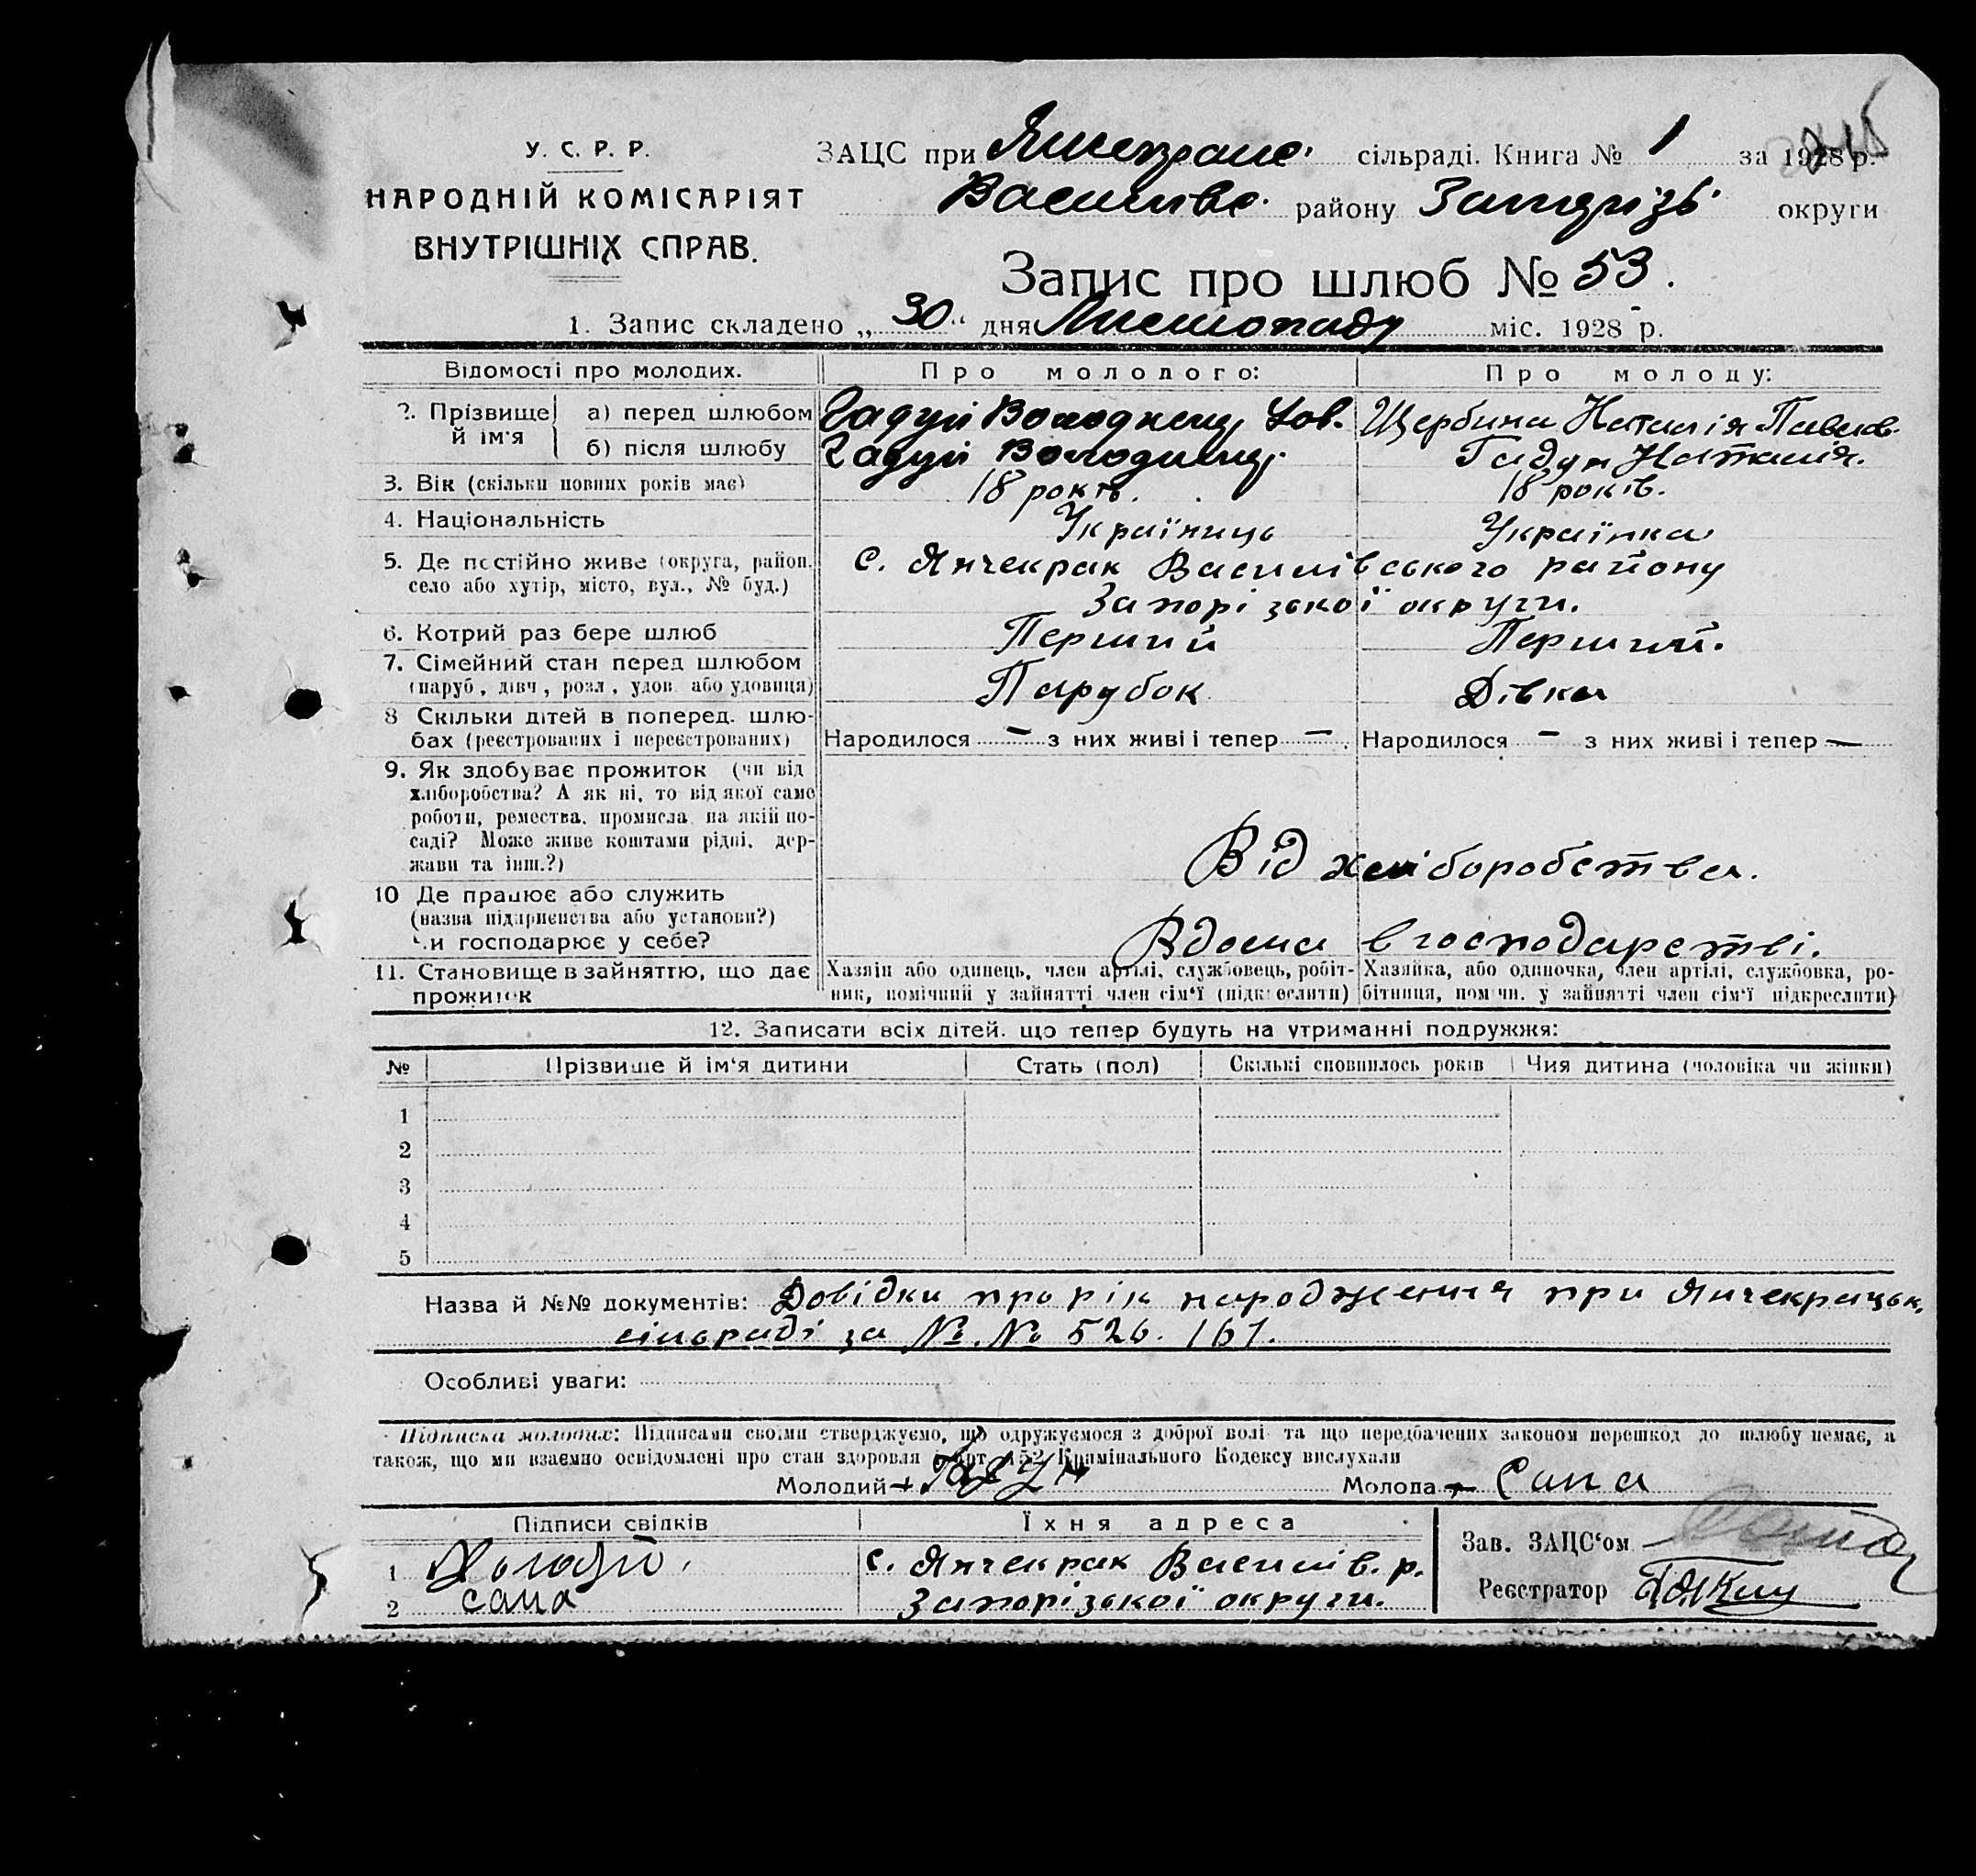 У. С. Р. Р.
НАРОДНІЙ КОМІСАРІЯТ
ВНУТРІШНІХ СПРАВ.
ЗАЦС при сільраді. Книга № 1 за 1928 р.
Василівс. району округи
Запис про шлюб № 53.
1. Запис складено „ 30 “ дня Листопаду міс. 1928 р.
Відомості про молодих. Про молодого: Про молоду:
2. Прізвище й ім'я а) перед шлюбом Гадун Щербина Наталія Павлов.
б) після шлюбу Гадун Гадун Наталія.
3. Вік (скільки повних років має) 18 років. 18 років.
4. Національність Українець Українка
5. Де постійно живе (округа, район, с. Янчекрак Василівського району
село або хутір, місто, вул., № буд.) Запорізької округи.
6. Котрий раз бере шлюб Перший Перший.
7. Сімейний стан перед шлюбом
(паруб., дівч., розл., удов. або удовиця) Парубок Дівка
8 Скільки дітей в поперед. шлю-
бах (реєстрованих і нереєстрованих) Народилося — з них живі і тепер — . Народилося — з них живі і тепер —
9. Як здобуває прожиток (чи від
хліборобства? А як ні, то від якої саме
роботи, ремества, промисла, на якій по-
саді? Може живе коштами рідні, дер-
жави та інш.?) Від хліборобства.
10 Де працює або служить
(назва підприємства або установи?)
Чи господарює у себе? Вдома в господарстві.
11. Становище в зайняттю, що дає прожиток
Хазяїн або одинець, член артілі, службовець, робіт-
ник, помічний у зайнятті член сім'ї (підкреслити)
Хазяйка, або одиночка, член артілі, службовка, ро-
бітниця, помічн. у зайнятті член сім'ї підкреслити)
12. Записати всіх дітей, що тепер будуть на утриманні подружжя:
№ Прізвище й ім'я дитини Стать (пол) Скількі сповнилось років Чия дитина (чоловіка чи жінки)
1
2
3
4
5
Назва й №№ документів: Довідки про рік народження при Янчекрацьк.
сільраді за №.№ 526. 167.
Особливі уваги:
Підписка молодих: Підписами своїми стверджуємо, що одружуємося з доброї волі та що передбачених законом перешкод до шлюбу немає, а
також, що ми взаємно освідомлені про стан здоровля і арт. 152 Кримінального Кодексу вислухали
Молодий Гадун Молода
Підписи свідків Їхня адреса
1 с. Янчекрак Василів. р.
2 Запорізької округи.
Зав. ЗАЦС'ом
Реєстратор